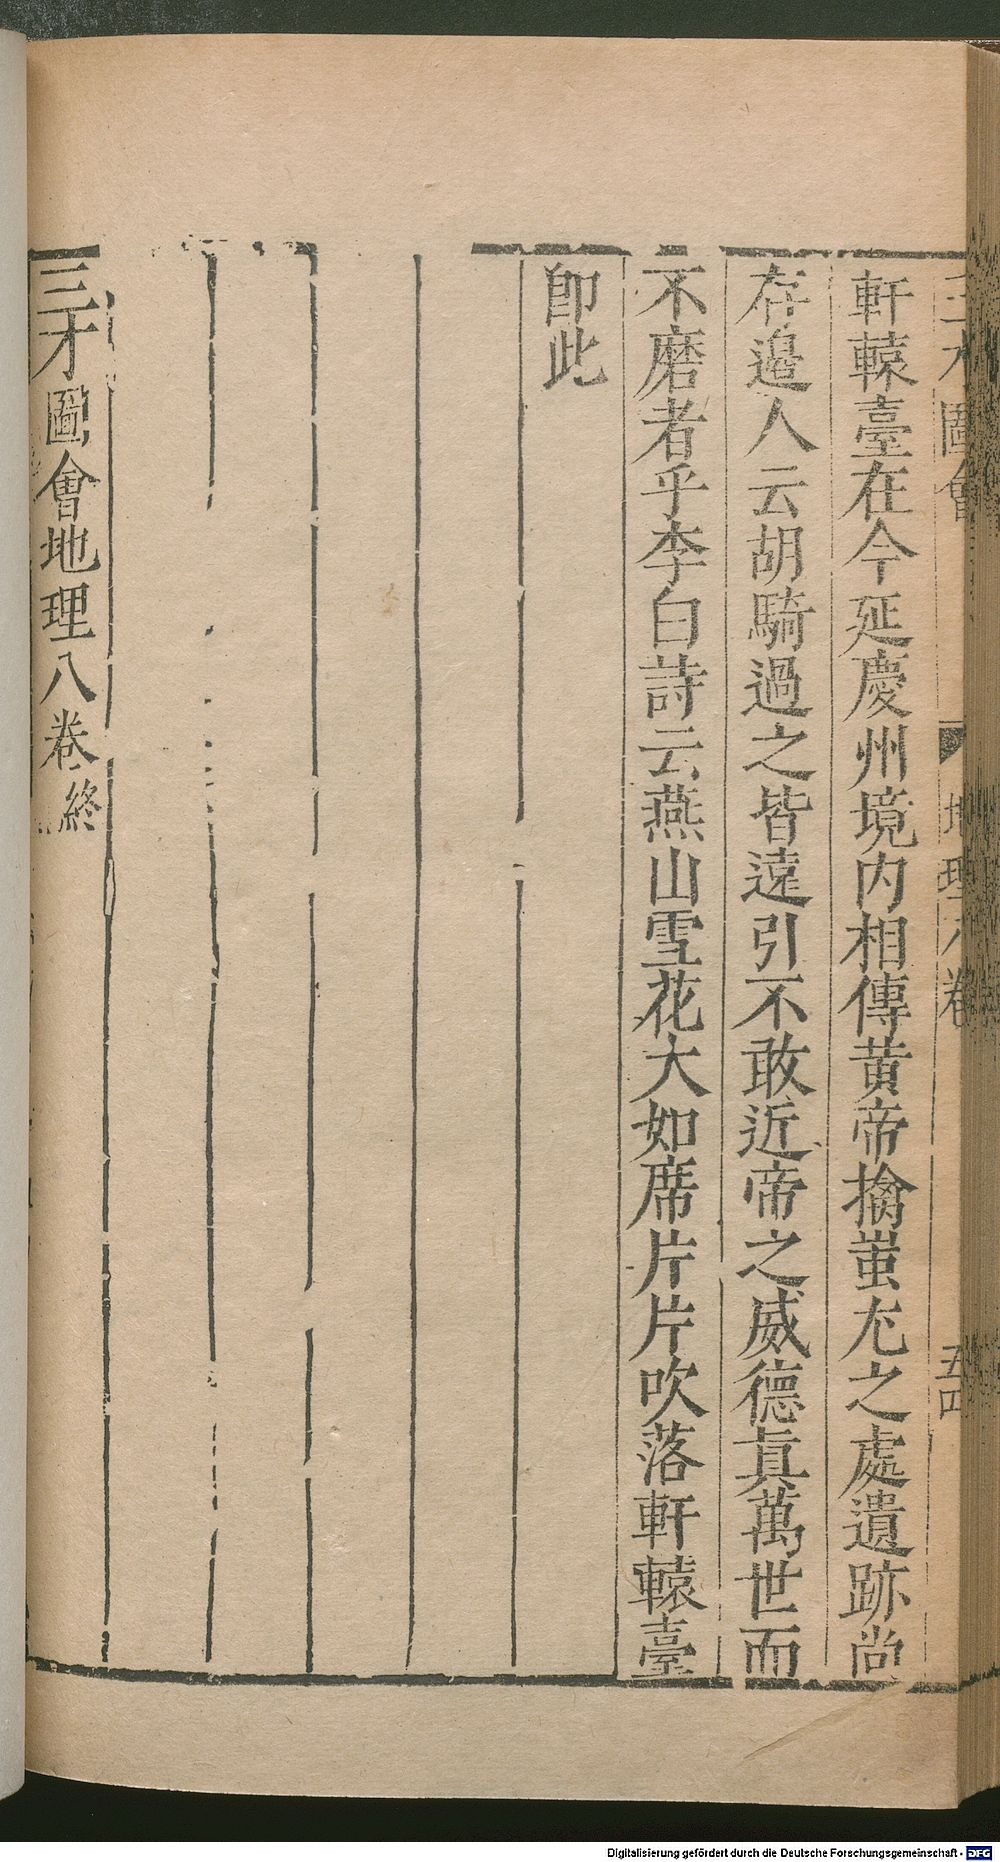 三才圖會
地理八卷
五四
軒轅臺在今延慶州境内相傳黄帝擒蚩尤之處遺跡尚
存邊人云胡騎過之皆遠引不敢近帝之威德真萬世而
不磨者乎李白詩云燕山雪花大如席片片吹落軒轅臺
卽此
三才圖會地理八卷終
Digitalisierung gefördert durch die Deutsche Forschungsgemeinschaft - DFG